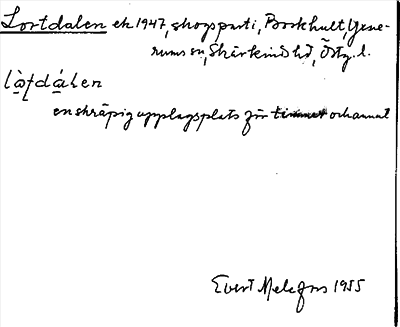 Lortdalen ek 1947, skogsparti, Borkhult, Yxne-
rums sn, Skärkinds hd, Östg. l.
en skräpig upplagsplats för timmer och annat
Evert Melefors 1955